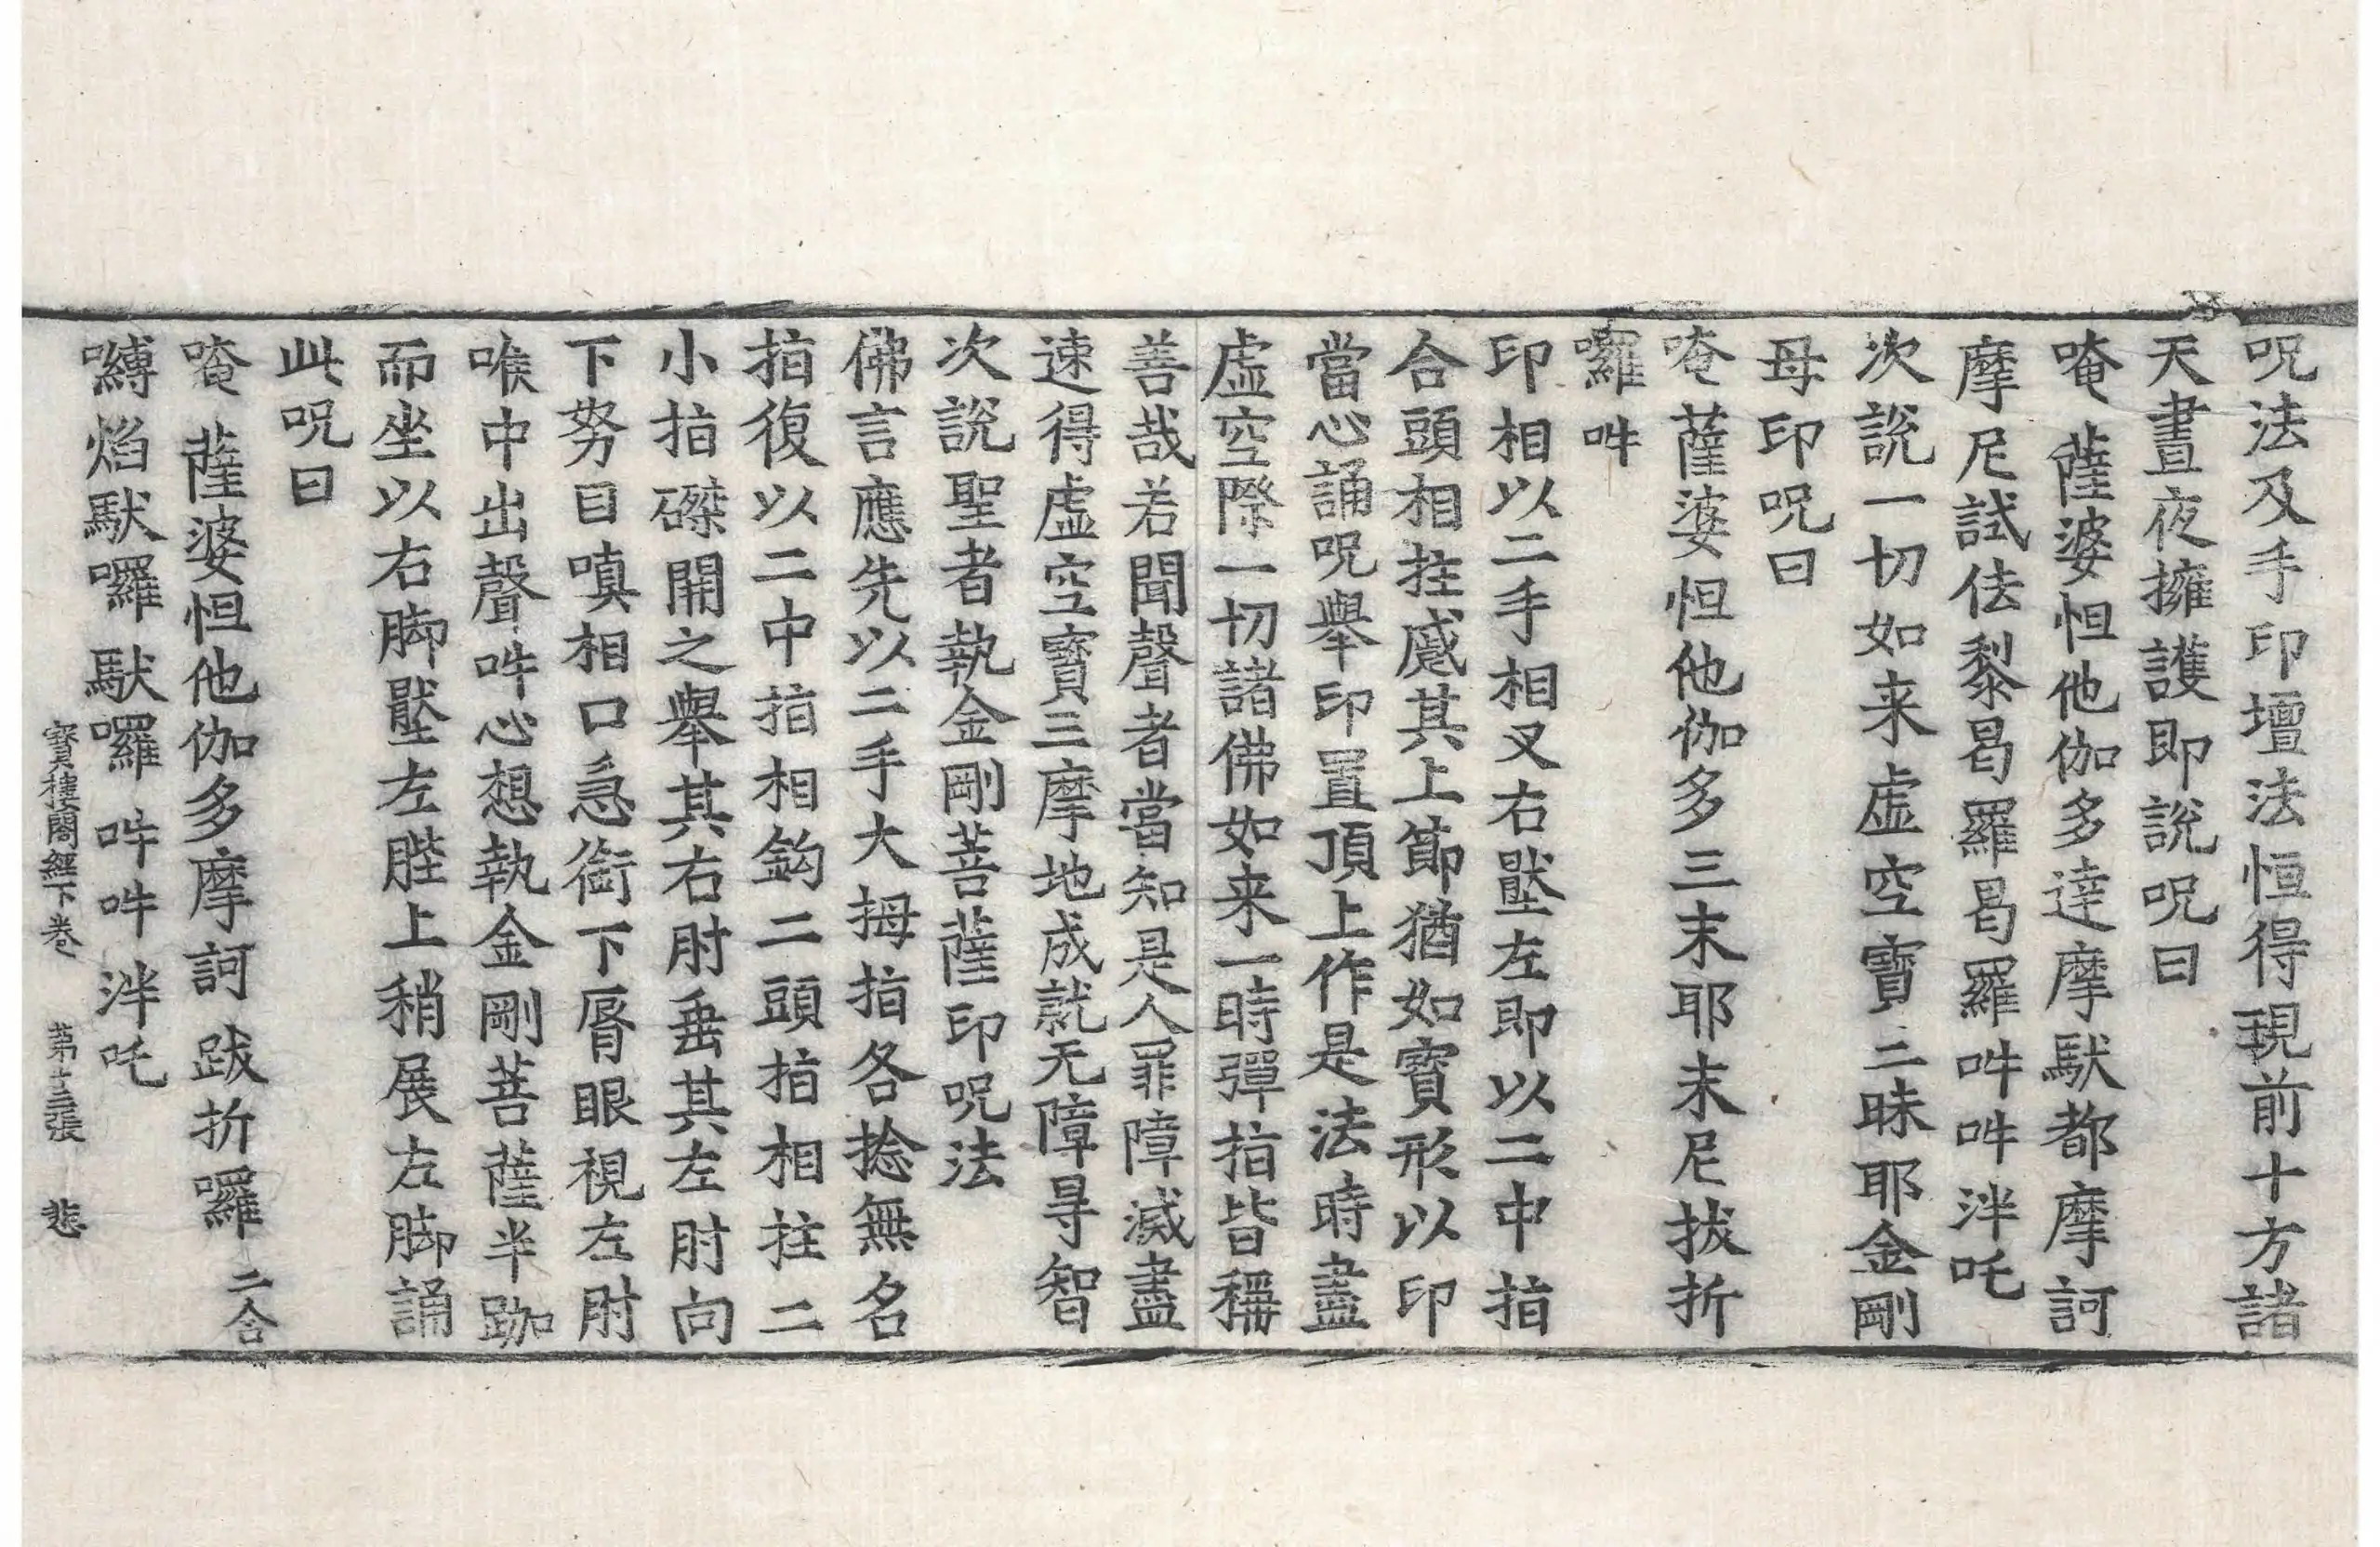 呪法及手印壇法恒得現前十方諸
天晝夜擁護即說呪曰
唵薩婆怛他伽多達摩馱都摩訶
摩尼試佉黎曷羅曷羅吽吽泮吒
次說一切如来虚空寶三昧耶金剛
母印呪曰
唵薩婆怛他伽多三末耶末尼拔折
囉吽
印相以二手相叉右壓左即以二中指
合頭相拄蹙其上節猶如寶形以印
當心誦呪舉印置頂上作是法時盡
虚空際一切諸佛如来一時彈指皆稱
善哉若聞聲者當知是人罪障滅盡
速得虚空寶三摩地成就无障㝵智
次說聖者執金剛菩薩印呪法
佛言應先以二手大拇指各捻無名
指復以二中指相鈎二頭指相拄二
小指磔開之舉其右肘垂其左肘向
下努目嗔相口急銜下脣眼視左肘
喉中出聲吽心想執金剛菩薩半跏
而坐以右脚壓左䏶上稍展左脚誦
此呪曰
唵薩婆怛他伽多摩訶跋折囉二合
嚩焰馱囉馱囉吽吽泮吒
寶樓閣經下卷 第十三張 悲